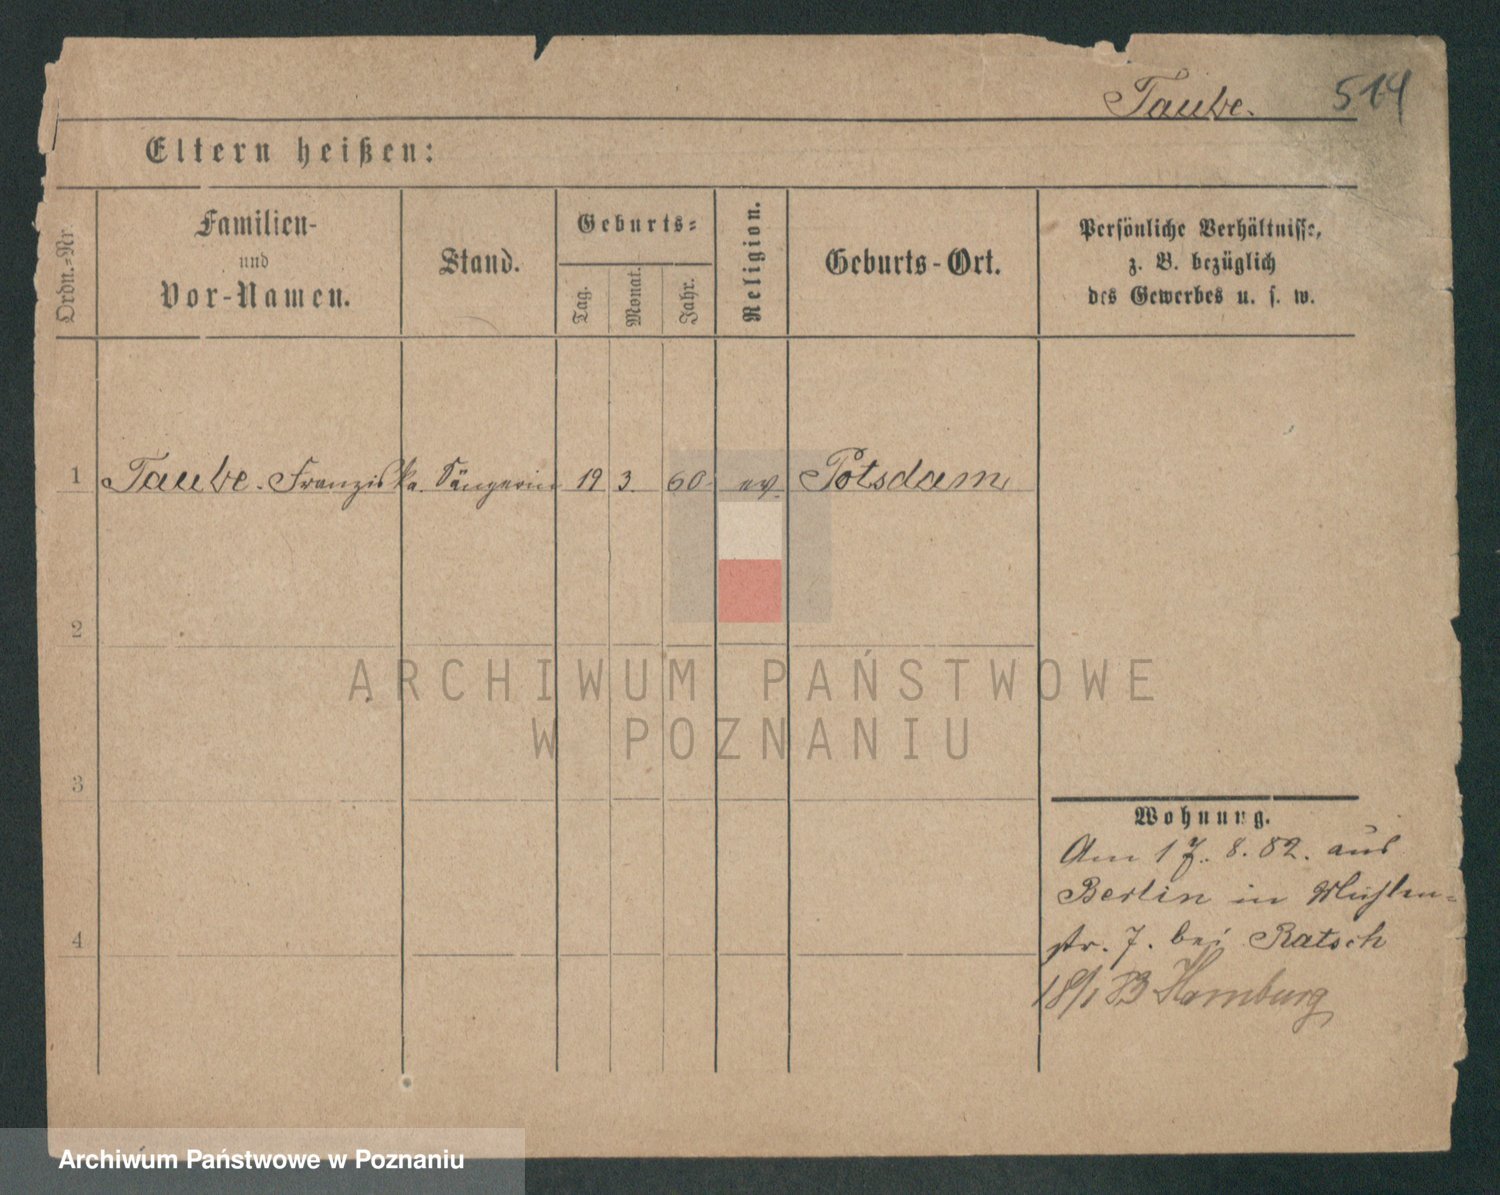 Taube. 514
Eltern heißen:
Ordn.-Nr.
Familien-
und
Vor-Namen.
Stand.
Geburts-
Tag.
Monat.
Jahr.
Religion.
Geburts-Ort.
Persönliche Verhältnisse,
z. B. bezüglich
des Gewerbes u. s. w.
1 Taube. Franziska. Sängerin 19 3. 60. ev. Potsdam
2
ARCHIWUM PAŃSTWOWE
W POZNANIU
3
Wohnung.
Am 17. 8. 82. aus
Berlin in Mühlen-
4
str. 7. bei Ratsch
18/1 83 Hamburg
Archiwum Państwowe w Poznaniu